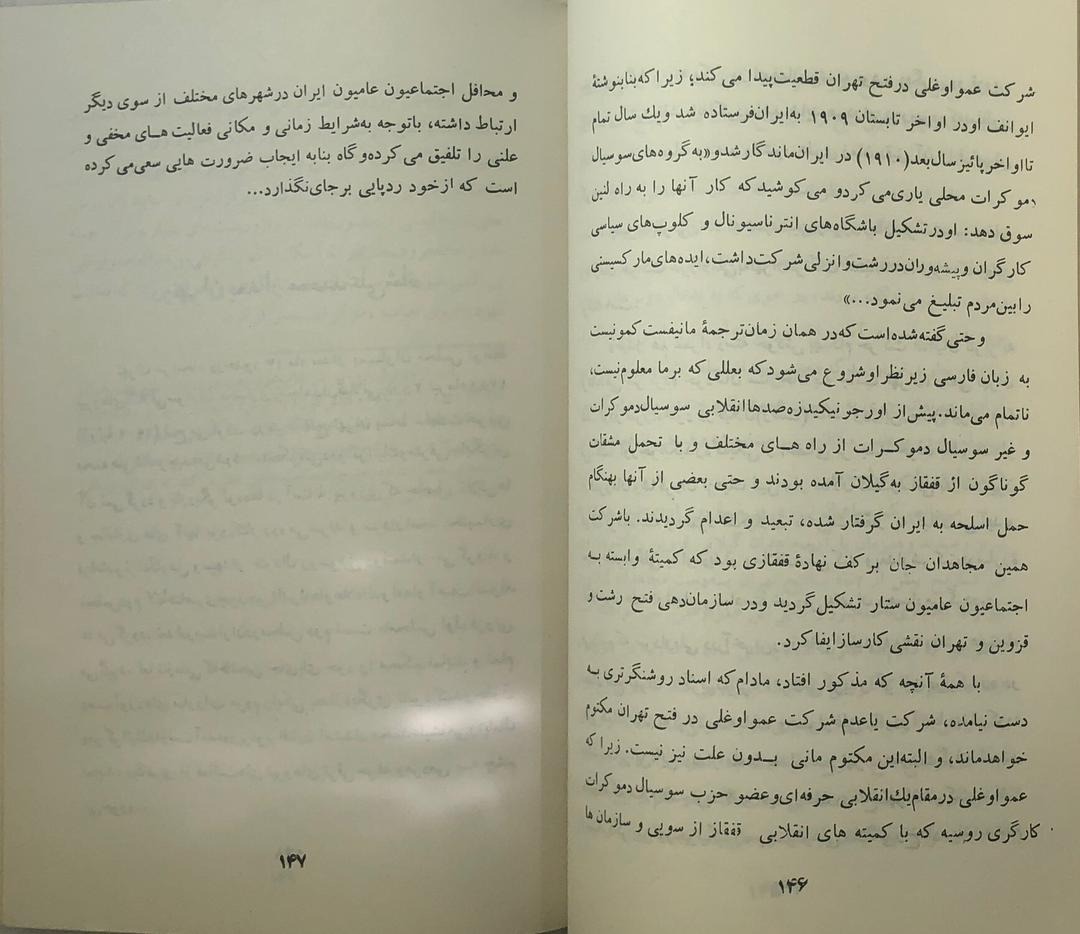 شرکت عمواوغلی درفتح تهران قطعیت‌پیدا می‌کند؛ زیراکه‌بنابنوشتهٔ
ایوانف اودر اواخر تابستان ۱۹۰۹ به‌ایران‌فرستاده شد ویك سال تمام
تااواخرپائیزسال‌بعد(۱۹۱۰) در ایران‌ماندگارشدو«به‌گروه‌های‌سوسیال
دموکرات محلی یاری‌می‌کردو می‌کوشیدکه کار آنها را به راه لنین
سوق دهد: اودرتشکیل باشگاه‌های انترناسیونال و کلوپ‌های سیاسی
کارگران وپیشه‌وران‌دررشت‌وانزلی‌شرکت‌داشت،ایده‌های‌مارکسیستی
رابین‌مردم تبلیغ می‌نمود...»
وحتی‌گفته‌شده‌است‌که‌در همان زمان‌ترجمهٔ مانیفست کمونیست
به زبان فارسی زیرنظراوشروع می‌شودکه بعللی که برما معلوم‌نیست،
ناتمام می‌ماند.پیش‌از اورجونیکیدزه‌صدهاانقلابی سوسیال‌دموکرات
و غیر سوسیال دموکرات از راه هـای مختلف و با تحمل مشقات
گوناگون از قفقاز به‌گیلان آمده بودند و حتی بعضی از آنها بهنگام
حمل اسلحه به ایران گرفتار شده، تبعید و اعدام گردیدند. باشرکت
همین مجاهدان جان برکف نهادهٔ قفقازی بود که کمیتهٔ وابسته بـه
اجتماعیون عامیون ستار تشکیل‌گردید ودر سازمان‌دهی فتح رشت و
قزوین و تهران نقشی کارسازایفاکرد.
با همهٔ آنچه که مذکور افتاد، مادام که اسناد روشنگرتری بـه
دست نیامده، شرکت یاعدم شرکت عمواوغلی در فتح تهران مکتوم
خواهدماند، و البته‌این مکتوم مانی بـدون علت نیز نیست. زیرا که
عمواوغلی درمقام‌یك‌انقلابی حرفه‌ای‌وعضو حزب سوسیال‌دموکرات
کارگری روسیه که با کمیته های انقلابی قفقاز از سویی و سازمان‌ها
۱۴۶
و محافل اجتماعیون عامیون ایران درشهرهای مختلف از سوی دیگر
ارتباط داشته، باتوجه به‌شرایط زمانی و مکانی فعالیت هـای مخفی و
علنی را تلفیق می کرده‌وگاه بنابه ایجاب ضرورت هایی سعی‌می‌کرده
است که ازخود ردپایی برجای‌نگذارد...
۱۴۷